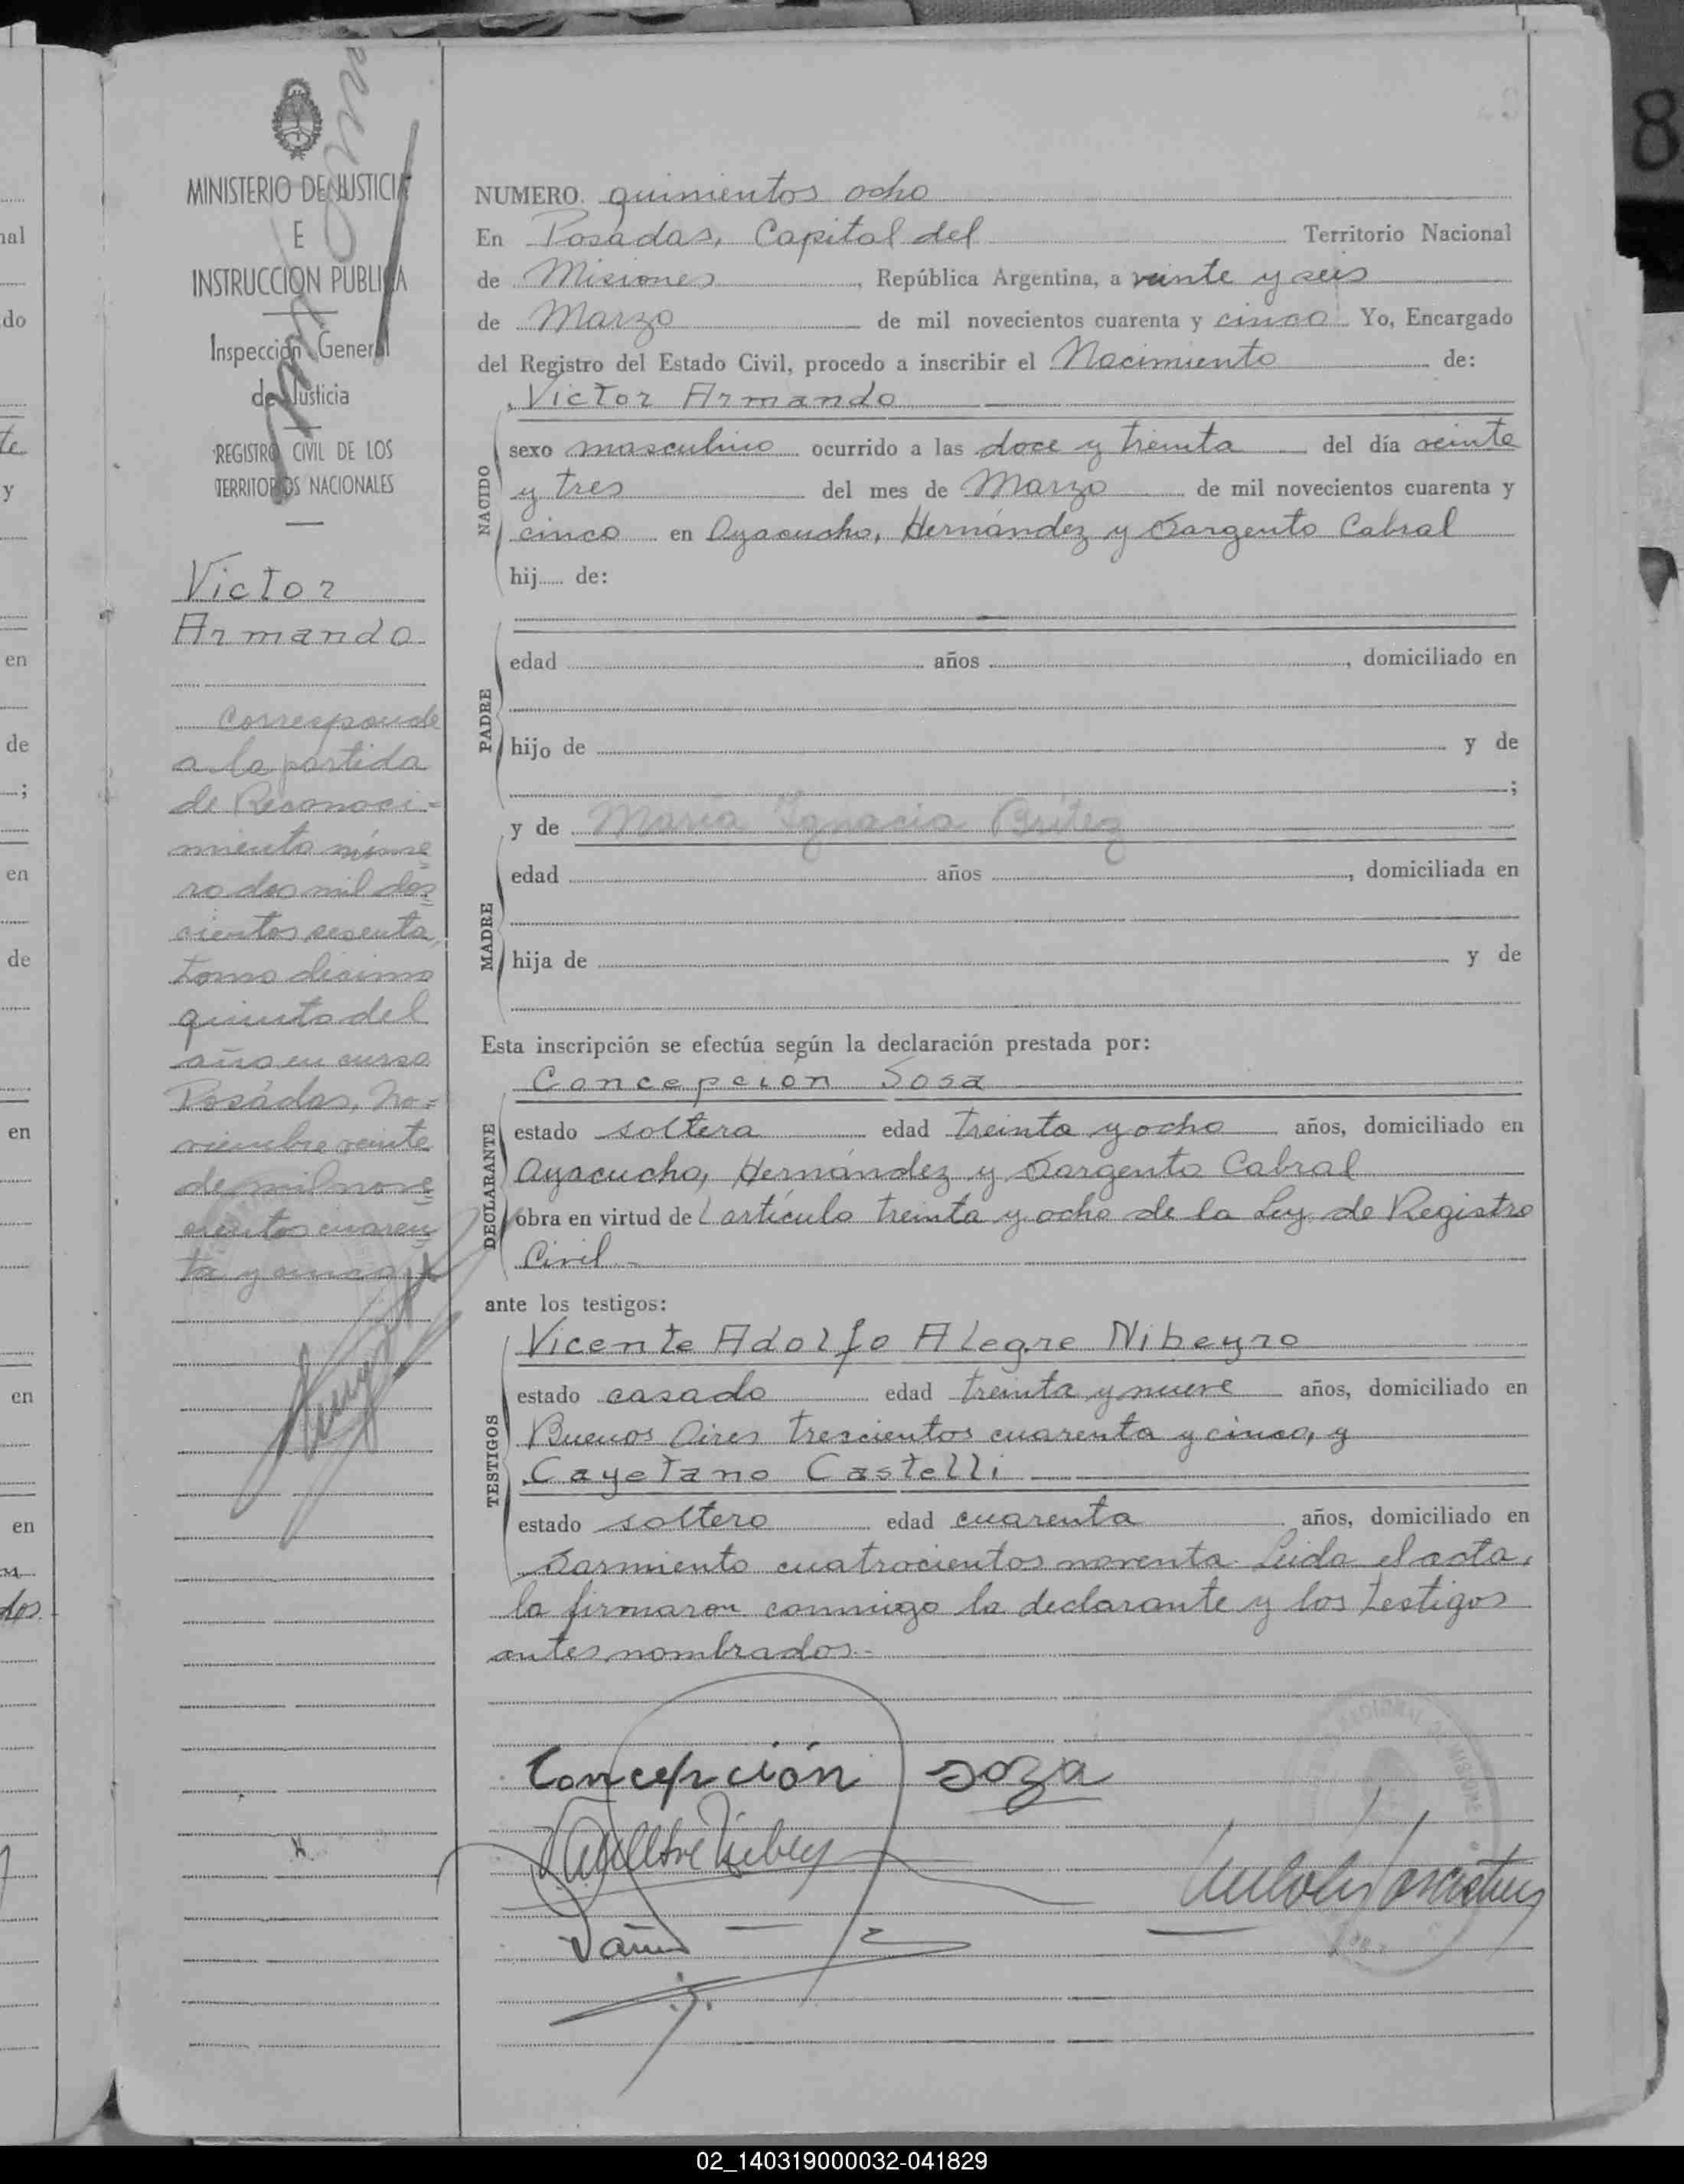 MINISTERIO DE JUSTICIA
E
INSTRUCCION PUBLICA
Inspección General
de Justicia
REGISTRO CIVIL DE LOS
TERRITORIOS NACIONALES
Victor
Armando
Corresponde
a la partida
de Reconoci=
miento núme=
ro dos mil dos=
cientos sesenta,
tomo décimo
quinto del
año en curso
Posadas, No=
viembre veinte
de mil nove=
cientos cuaren=
ta y cinco
NUMERO quinientos ocho
En Posadas, Capital del Territorio Nacional
de Misiones, República Argentina, a veinte y seis
de Marzo de mil novecientos cuarenta y cinco Yo, Encargado
del Registro del Estado Civil, procedo a inscribir el Nacimiento de:
Victor Armando
NACIDO
sexo masculino ocurrido a las doce y treinta del día veinte
y tres del mes de Marzo de mil novecientos cuarenta y
cinco en Ayacucho, Hernández y Sargento Cabral
hij..... de:
PADRE
edad años , domiciliado en
hijo de y de
;
y de María Ignacia Britez
MADRE
edad años , domiciliada en
hija de y de
Esta inscripción se efectúa según la declaración prestada por:
Concepción Sosa
DECLARANTE
estado soltera edad treinta y ocho años, domiciliado en
Ayacucho, Hernández y Sargento Cabral
obra en virtud del artículo treinta y ocho de la Ley de Registro
Civil.-
ante los testigos:
Vicente Adolfo Alegre Nibeyro
TESTIGOS
estado casado edad treinta y nueve años, domiciliado en
Buenos Aires trescientos cuarenta y cinco, y
Cayetano Castelli
estado soltero edad cuarenta años, domiciliado en
Sarmiento cuatrocientos noventa. Leida el acta,
la firmaron conmigo la declarante y los testigos
antes nombrados.-
Concepción soza
8
02_140319000032-041829